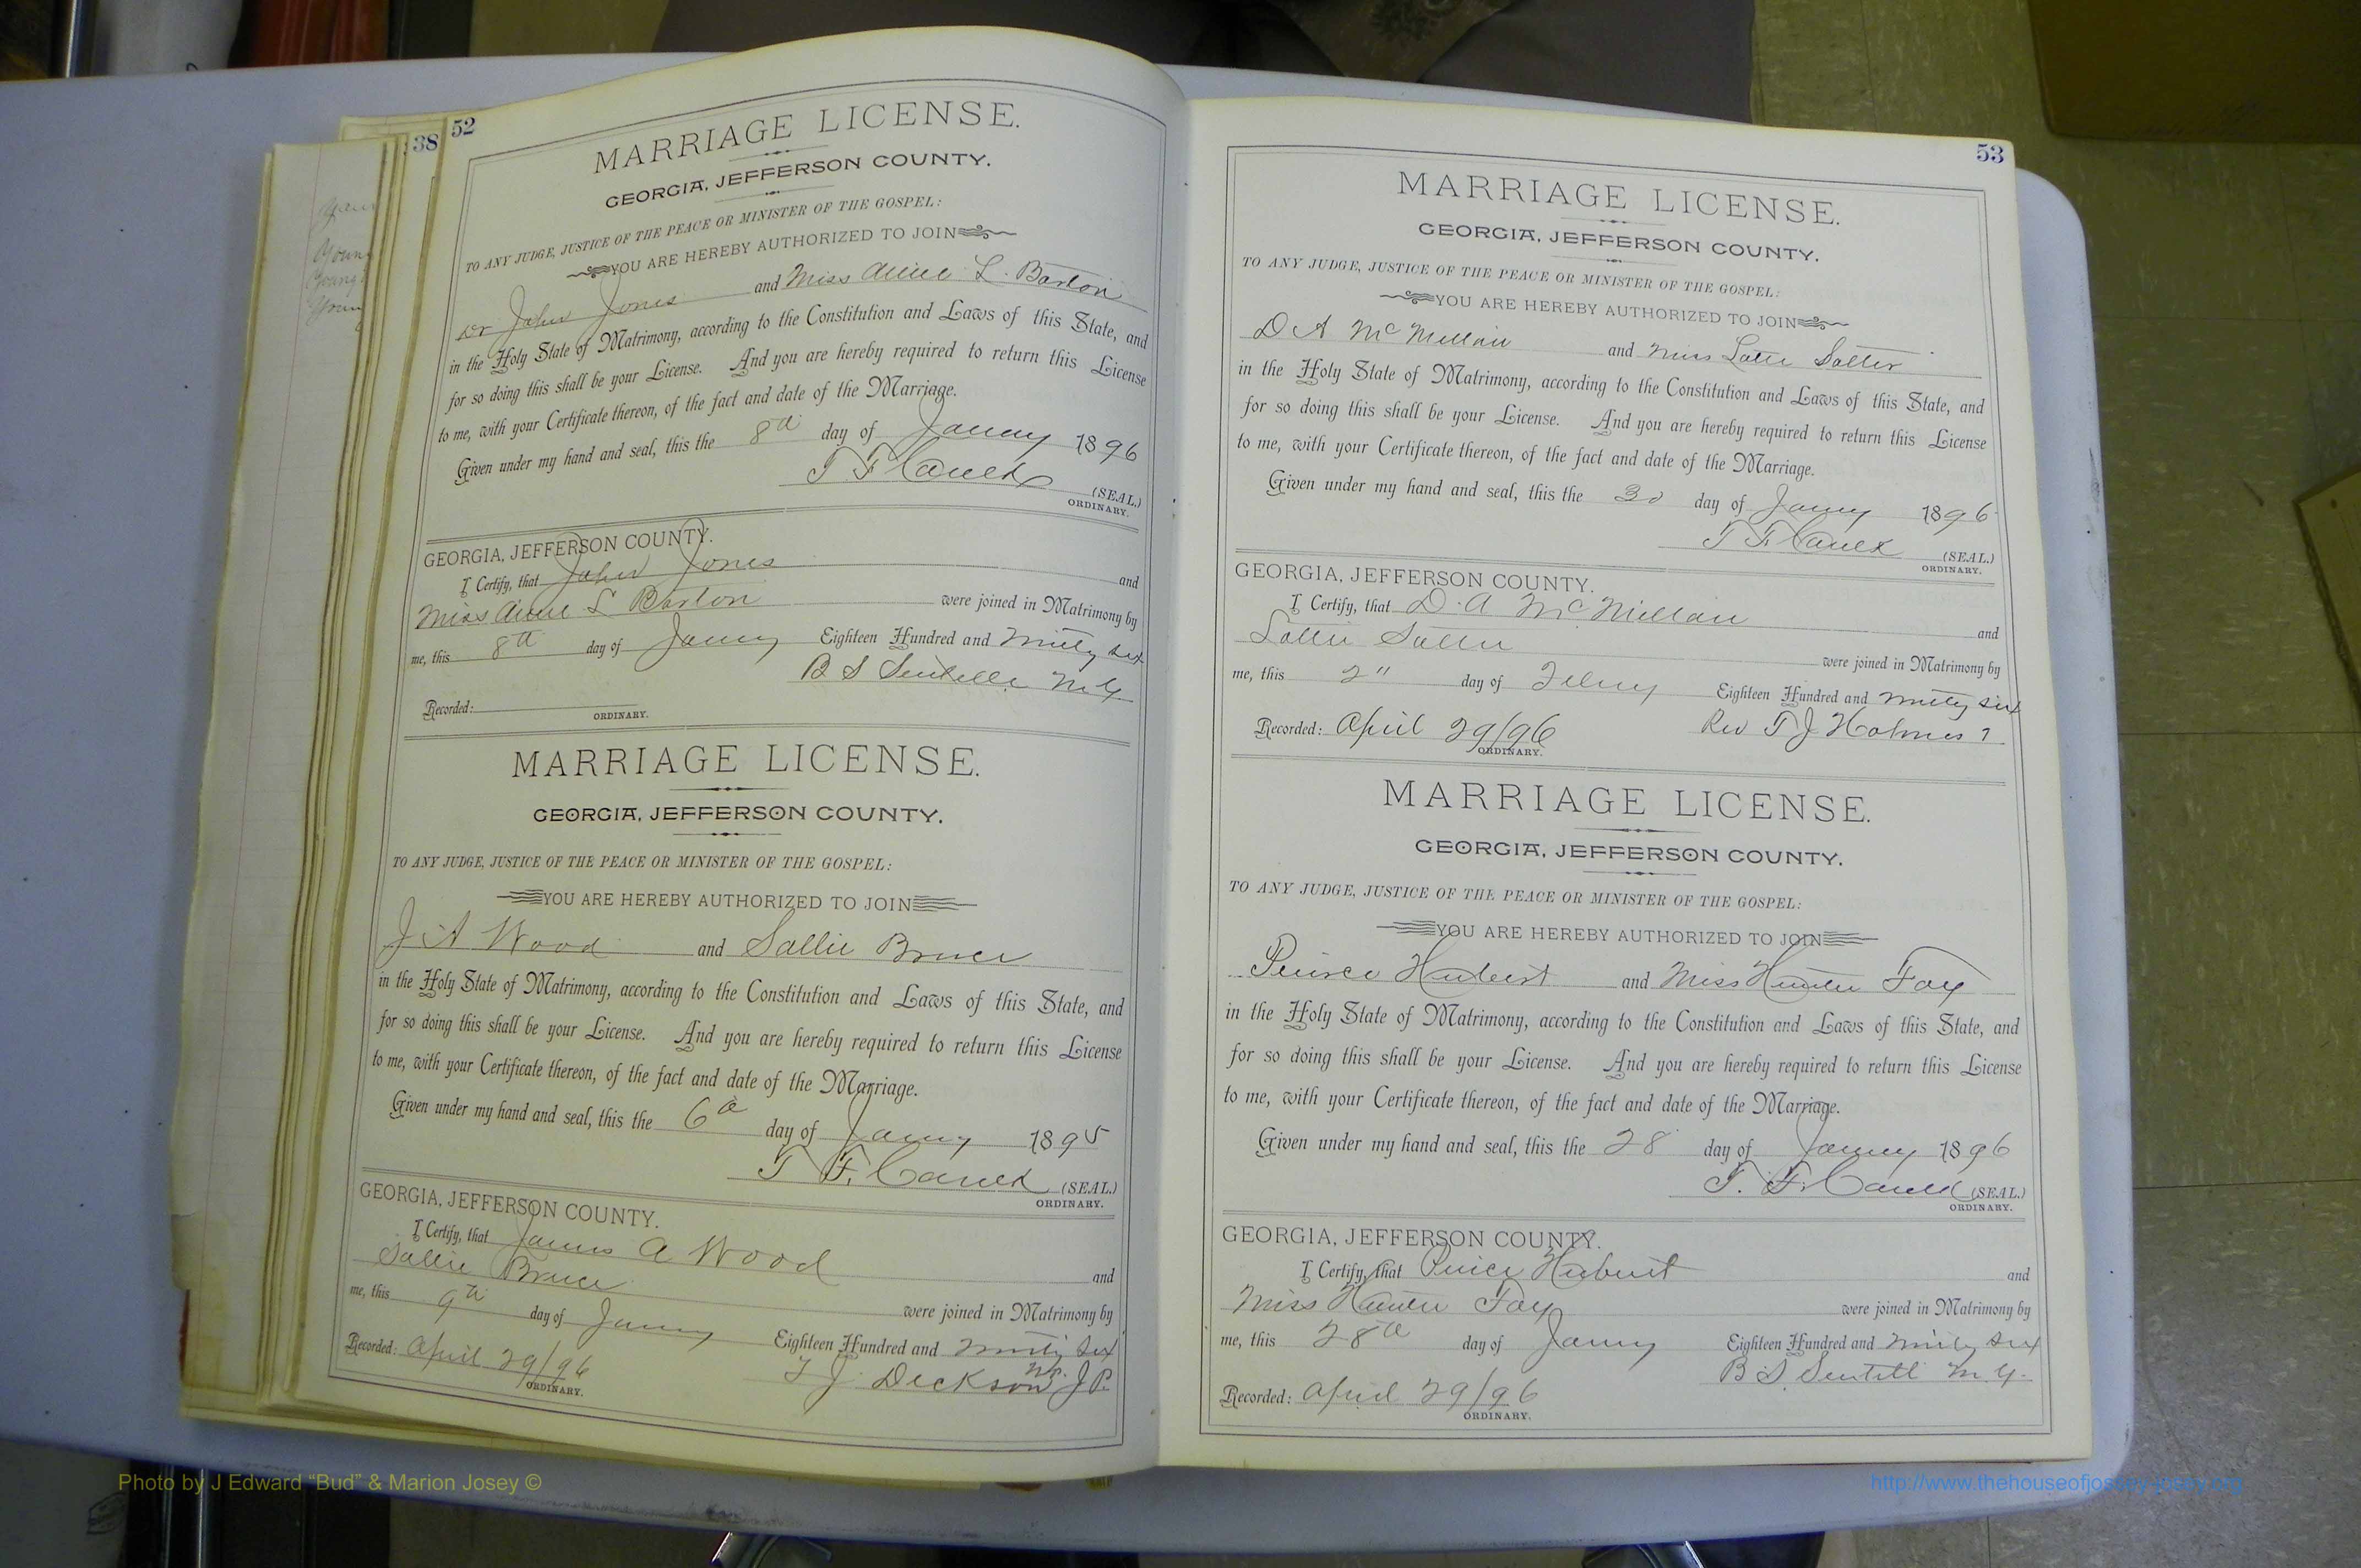 38
52
MARRIAGE LICENSE.
GEORGIA, JEFFERSON COUNTY.
TO ANY JUDGE, JUSTICE OF THE PEACE OR MINISTER OF THE GOSPEL:
YOU ARE HEREBY AUTHORIZED TO JOIN
Dr John Jones and Miss L. Barton
in the Holy State of Matrimony, according to the Constitution and Laws of this State, and
for so doing this shall be your License. And you are hereby required to return this License
to me, with your Certificate thereon, of the fact and date of the Marriage.
Given under my hand and seal, this the 8th day of Janry 1896
T. F. (SEAL.)
ORDINARY.
GEORGIA, JEFFERSON COUNTY.
I Certify, that John Jones and
Miss L Barton were joined in Matrimony by
me, this 8th day of Janry Eighteen Hundred and Ninety Six
B S Sentelle M G
Recorded:
ORDINARY.
MARRIAGE LICENSE.
GEORGIA, JEFFERSON COUNTY.
TO ANY JUDGE, JUSTICE OF THE PEACE OR MINISTER OF THE GOSPEL:
YOU ARE HEREBY AUTHORIZED TO JOIN
J A Wood and Sallie Bruce
in the Holy State of Matrimony, according to the Constitution and Laws of this State, and
for so doing this shall be your License. And you are hereby required to return this License
to me, with your Certificate thereon, of the fact and date of the Marriage.
Given under my hand and seal, this the 6th day of Janry 1895
T F. (SEAL.)
ORDINARY.
GEORGIA, JEFFERSON COUNTY.
I Certify, that James A Wood and
Sallie Bruce were joined in Matrimony by
me, this 9th day of Janry Eighteen Hundred and Ninety Six
Recorded: April 29/96 T J Dickson J P.
ORDINARY.
53
MARRIAGE LICENSE.
GEORGIA, JEFFERSON COUNTY.
TO ANY JUDGE, JUSTICE OF THE PEACE OR MINISTER OF THE GOSPEL:
YOU ARE HEREBY AUTHORIZED TO JOIN
D A McMillan and Miss Salter
in the Holy State of Matrimony, according to the Constitution and Laws of this State, and
for so doing this shall be your License. And you are hereby required to return this License
to me, with your Certificate thereon, of the fact and date of the Marriage.
Given under my hand and seal, this the 30 day of Janry 1896
T F. (SEAL.)
ORDINARY.
GEORGIA, JEFFERSON COUNTY.
I Certify, that D. A McMillan and
Salter were joined in Matrimony by
me, this 2" day of Febry Eighteen Hundred and Ninety Six
Recorded: April 29/96 Rev T J Holmes
ORDINARY.
MARRIAGE LICENSE.
GEORGIA, JEFFERSON COUNTY.
TO ANY JUDGE, JUSTICE OF THE PEACE OR MINISTER OF THE GOSPEL:
YOU ARE HEREBY AUTHORIZED TO JOIN
Peirce Hubert and Miss Hunter Fay
in the Holy State of Matrimony, according to the Constitution and Laws of this State, and
for so doing this shall be your License. And you are hereby required to return this License
to me, with your Certificate thereon, of the fact and date of the Marriage.
Given under my hand and seal, this the 28 day of Janry 1896
T. F. (SEAL.)
ORDINARY.
GEORGIA, JEFFERSON COUNTY.
I Certify, that Peirce Hubert and
Miss Hunter Fay were joined in Matrimony by
me, this 28th day of Janry Eighteen Hundred and Ninety Six
B S. Sentell M. G.
Recorded: April 29/96
ORDINARY.
Photo by J Edward “Bud” & Marion Josey ©